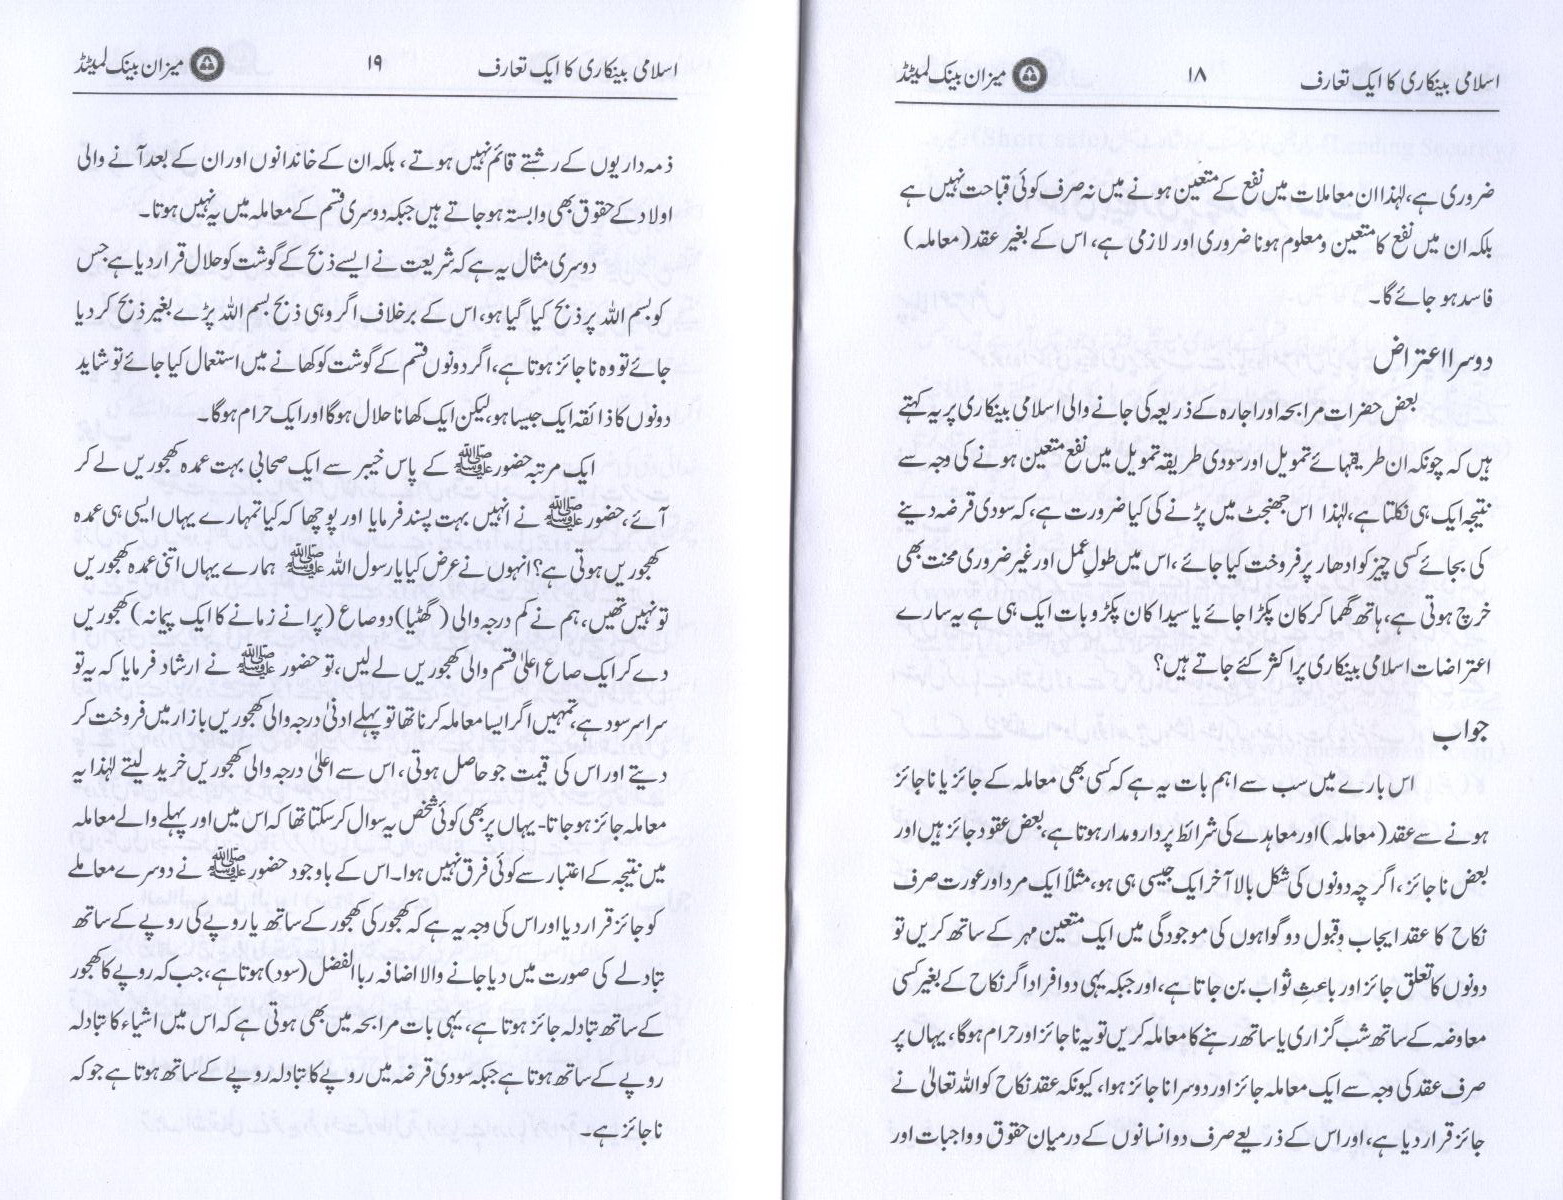 اسلامی بینکاری کا ایک تعارف ۱۸ میزان بینک لمیٹڈ
ضروری ہے، لہٰذا ان معاملات میں نفع کے متعین ہونے میں نہ صرف کوئی قباحت نہیں ہے
بلکہ ان میں نفع کا متعین و معلوم ہونا ضروری اور لازمی ہے، اس کے بغیر عقد (معاملہ)
فاسد ہو جائے گا۔
دوسرا اعتراض
بعض حضرات مرابحہ اور اجارہ کے ذریعہ کی جانے والی اسلامی بینکاری پر یہ کہتے
ہیں کہ چونکہ ان طریقہائے تمویل اور سودی طریقہ تمویل میں نفع متعین ہونے کی وجہ سے
نتیجہ ایک ہی نکلتا ہے، لہٰذا اس جھنجٹ میں پڑنے کی کیا ضرورت ہے، کہ سودی قرضہ دینے
کی بجائے کسی چیز کو ادھار پر فروخت کیا جائے، اس میں طولِ عمل اور غیر ضروری محنت بھی
خرچ ہوتی ہے، ہاتھ گھما کر کان پکڑا جائے یا سیدا کان پکڑو بات ایک ہی ہے یہ سارے
اعتراضات اسلامی بینکاری پر اکثر کئے جاتے ہیں؟
جواب
اس بارے میں سب سے اہم بات یہ ہے کہ کسی بھی معاملہ کے جائز یا ناجائز
ہونے سے عقد (معاملہ) اور معاہدے کی شرائط پر دارومدار ہوتا ہے، بعض عقود جائز ہیں اور
بعض ناجائز، اگرچہ دونوں کی شکل بالا آخر ایک جیسی ہی ہو، مثلاً ایک مرد اور عورت صرف
نکاح کا عقد ایجاب و قبول دو گواہوں کی موجودگی میں ایک متعین مہر کے ساتھ کریں تو
دونوں کا تعلق جائز اور باعثِ ثواب بن جاتا ہے، اور جبکہ یہی دو افراد اگر نکاح کے بغیر کسی
معاوضہ کے ساتھ شب گزاری یا ساتھ رہنے کا معاملہ کریں تو یہ ناجائز اور حرام ہوگا، یہاں پر
صرف عقد کی وجہ سے ایک معاملہ جائز اور دوسرا ناجائز ہوا، کیونکہ عقد نکاح کو اللہ تعالیٰ نے
جائز قرار دیا ہے، اور اس کے ذریعے صرف دو انسانوں کے درمیان حقوق و واجبات اور
اسلامی بینکاری کا ایک تعارف ۱۹ میزان بینک لمیٹڈ
ذمہ داریوں کے رشتے قائم نہیں ہوتے، بلکہ ان کے خاندانوں اور ان کے بعد آنے والی
اولاد کے حقوق بھی وابستہ ہو جاتے ہیں جبکہ دوسری قسم کے معاملہ میں یہ نہیں ہوتا۔
دوسری مثال یہ ہے کہ شریعت نے ایسے ذبح کے گوشت کو حلال قرار دیا ہے جس
کو بسم اللہ پر ذبح کیا گیا ہو، اس کے برخلاف اگر وہی ذبح بسم اللہ پڑے بغیر ذبح کر دیا
جائے تو وہ ناجائز ہوتا ہے، اگر دونوں قسم کے گوشت کو کھانے میں استعمال کیا جائے تو شاید
دونوں کا ذائقہ ایک جیسا ہو، لیکن ایک کھانا حلال ہوگا اور ایک حرام ہوگا۔
ایک مرتبہ حضور ﷺ کے پاس خیبر سے ایک صحابی بہت عمدہ کھجوریں لے کر
آئے، حضور ﷺ نے انہیں بہت پسند فرمایا اور پوچھا کہ کیا تمہارے یہاں ایسی ہی عمدہ
کھجوریں ہوتی ہے؟ انہوں نے عرض کیا یا رسول اللہ ﷺ ہمارے یہاں اتنی عمدہ کھجوریں
تو نہیں تھیں، ہم نے کم درجہ والی (گھٹیا) دو صاع (پرانے زمانے کا ایک پیمانہ) کھجوریں
دے کر ایک صاع اعلیٰ قسم والی کھجوریں لے لیں، تو حضور ﷺ نے ارشاد فرمایا کہ یہ تو
سراسر سود ہے، تمہیں اگر ایسا معاملہ کرنا تھا تو پہلے ادنیٰ درجہ والی کھجوریں بازار میں فروخت کر
دیتے اور اس کی قیمت جو حاصل ہوتی، اس سے اعلیٰ درجہ والی کھجوریں خرید لیتے لہٰذا یہ
معاملہ جائز ہو جاتا- یہاں پر بھی کوئی شخص یہ سوال کر سکتا تھا کہ اس میں اور پہلے والے معاملہ
میں نتیجہ کے اعتبار سے کوئی فرق نہیں ہوا۔ اس کے باوجود حضور ﷺ نے دوسرے معاملے
کو جائز قرار دیا اور اس کی وجہ یہ ہے کہ کھجور کی کھجور کے ساتھ یا روپے کی روپے کے ساتھ
تبادلے کی صورت میں دیا جانے والا اضافہ ربا الفضل (سود) ہوتا ہے، جب کہ روپے کا کھجور
کے ساتھ تبادلہ جائز ہوتا ہے، یہی بات مرابحہ میں بھی ہوتی ہے کہ اس میں اشیاء کا تبادلہ
روپے کے ساتھ ہوتا ہے جبکہ سودی قرضہ میں روپے کا تبادلہ روپے کے ساتھ ہوتا ہے جو کہ
ناجائز ہے۔